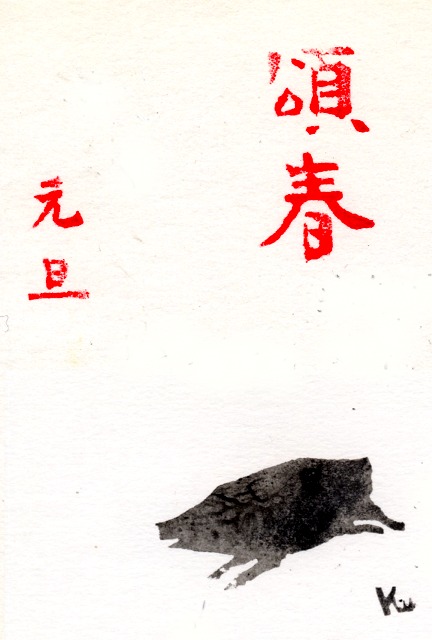 頌春
元旦